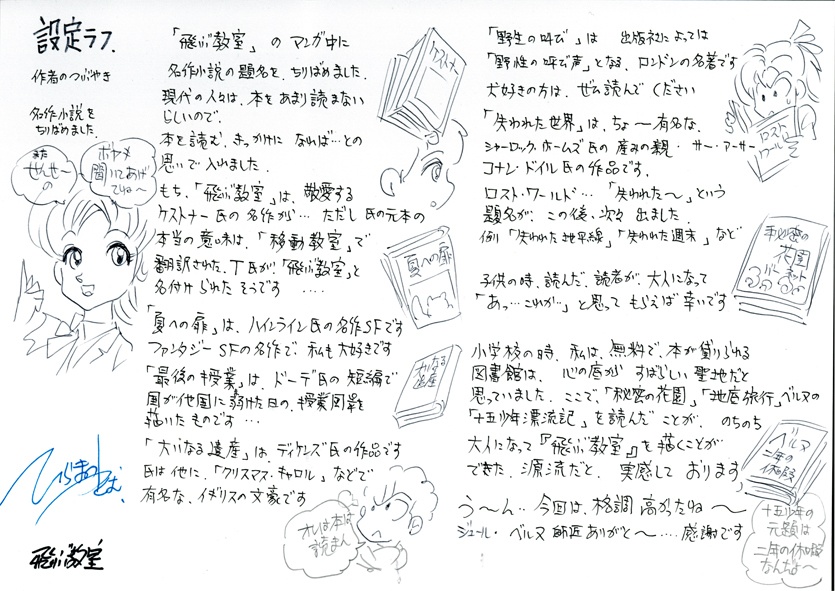 設定ラフ.
作者のつぶやき
名作小説を
ちりばめました.
また
せんせーの
ボヤメ
聞いてあげ
てね〜
「飛ぶ教室」の マンガ中に
名作小説の題名を、ちりばめました.
現代の人々は、本をあまり読まない
らしいので、
本を読む、きっかけに なれば…との
思いで入れました.
もち、「飛ぶ教室」は、敬愛する
ケストナー氏の名作から… ただし 氏の元本の
本当の意味は、「移動教室」で
翻訳された、丁氏が、「飛ぶ教室」と
名付けられたそうです ….
「夏への扉」は、ハインライン氏の名作SFです
ファンタジーSFの名作で、私も大好きです
「最後の授業」は、ドーデ氏の短編で
国が他国に敗けた日の、授業風景を
描いたものです…
「大いなる遺産」は、ディケンズ氏の作品です
氏は他に、「クリスマス・キャロル」などで
有名な、イギリスの文豪です
ケストナー
夏への扉
大いなる
遺産
オレは本は
読まん
ひらまつ
つとむ.
飛ぶ教室
「野生の呼び」は 出版社によっては
「野性の呼び声」となる、ロンドンの名著です
犬好きの方は、ぜひ読んでください
「失われた世界」は、ちょ〜有名な、
シャーロック・ホームズ氏の 産みの親・サー・アーサー
コナン・ドイル氏の作品です.
ロスト・ワールド… 「失われた〜」という
題名が、この後、次々 出ました.
例「失われた地平線」「失われた週末」など
子供の時、読んだ、読者が、大人になって
「あっ…これか…」と思って もらえば幸いです
小学校の時、私は、無料で、本が借りられる
図書館は、心の底から すばらしい聖地だと
思っていました. ここで、「秘密の花園」「地底旅行」ベルヌの
「十五少年漂流記」を読んだことが、のちのち
大人になって『飛ぶ教室』を描くことが
できた 源流だと、実感して おります
う〜ん… 今回は、格調 高かったね〜
ジュール・ベルヌ 師匠ありがと〜…. 感謝です
ロスト
ワールド
秘密の
花園
バーネット
ベルヌ
二年の
休暇
十五少年の
元題は
二年の休暇
なんちょ〜